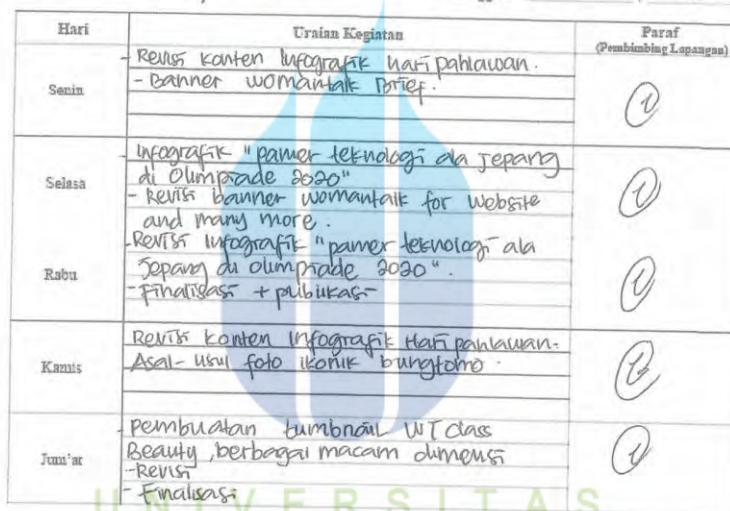 Hari Uraian Kegiatan Paraf
(Pembimbing Lapangan)
Senin
- Revisi konten Infografik hari pahlawan.
- Banner womantalk Brief.
Selasa
- infografik "pamer teknologi ala Jepang
di Olimpiade 2020"
- Revisi banner womantalk for website
and many more.
Rabu
- Revisi infografik "pamer teknologi ala
Jepang di olimpiade 2020".
- Finalisasi + publikasi
Kamis
Revisi konten infografik Hari pahlawan.
Asal-usul foto ikonik bungtomo.
Jum'at
- pembuatan tumbnail WT class
Beauty, berbagai macam dimensi
- Revisi
- Finalisasi
UNIVERSITAS